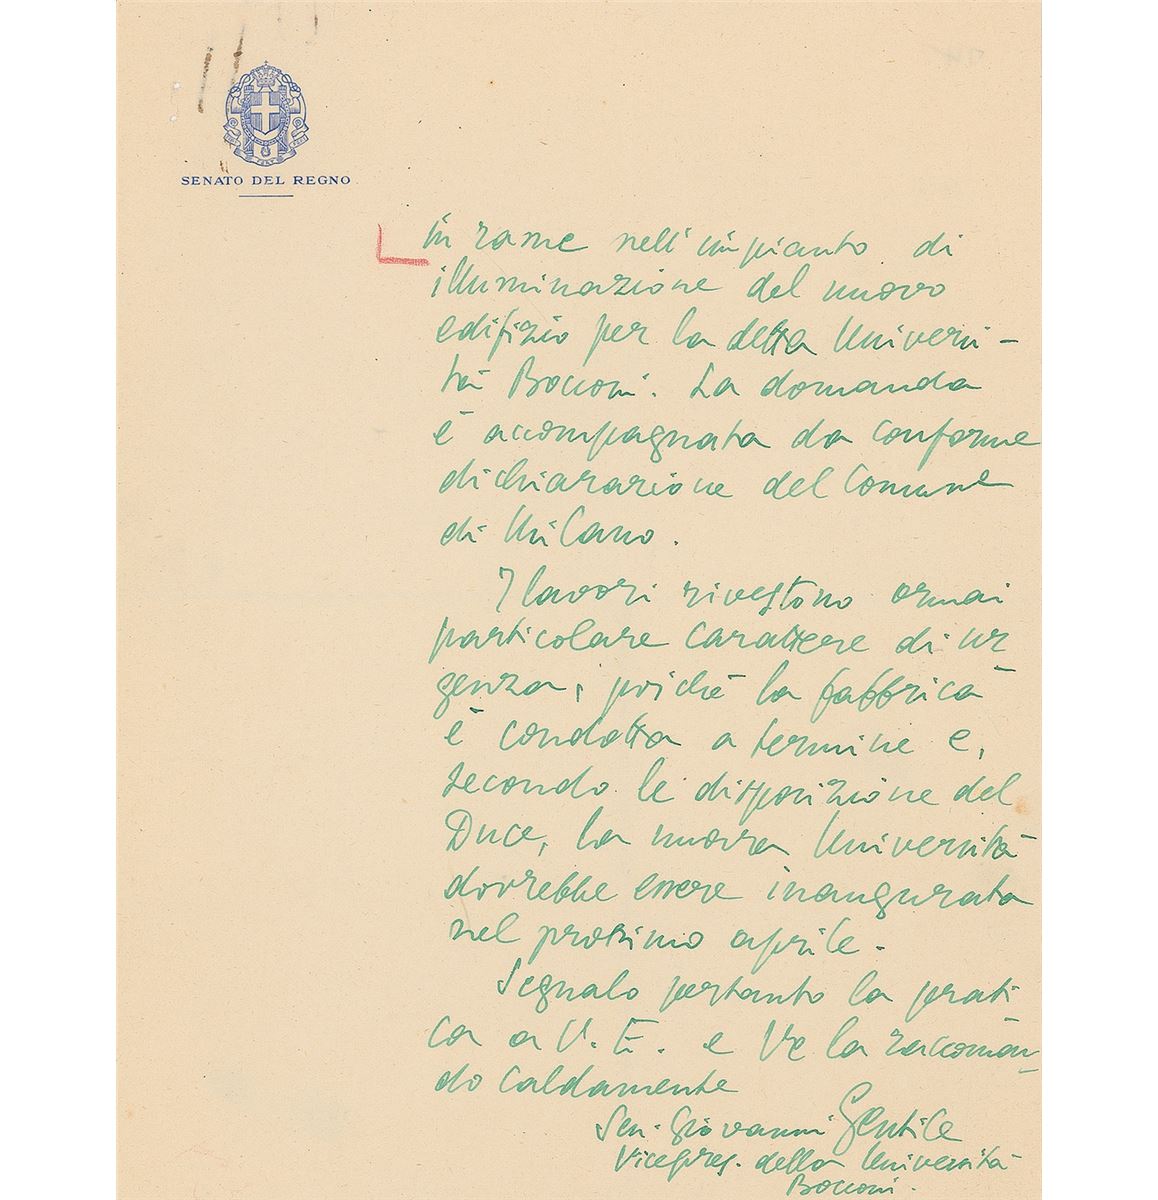 SENATO DEL REGNO
in rame nell'impianto di
illuminazione del nuovo
edifizio per la detta Universi-
tà Bocconi. La domanda
è accompagnata da conforme
dichiarazione del Comune
di Milano.
I lavori rivestono ormai
particolare carattere di ur
genza, poichè la fabbrica
è condotta a termine e,
secondo le disposizione del
Duce, la nuova Università
dovrebbe essere inaugurata
nel prossimo aprile.
Segnalo pertanto la prati
ca a V. E. e Ve la raccoman-
do caldamente
Sen. Giovanni Gentile
Vicepres. della Università
Bocconi.